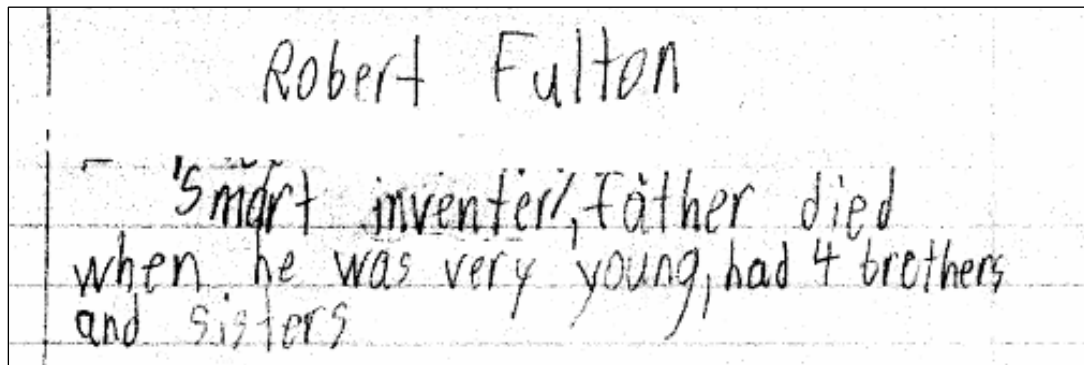 Robert Fulton
Smart inventer, father died
when he was very young, had 4 brothers
and sisters